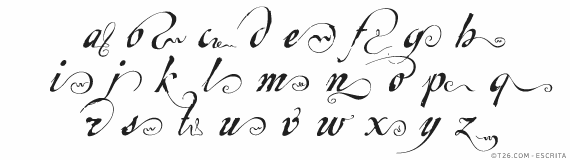 a b c d e f g h
i j k l m n o p q
r s t u v w x y z
©T26.COM - ESCRITA